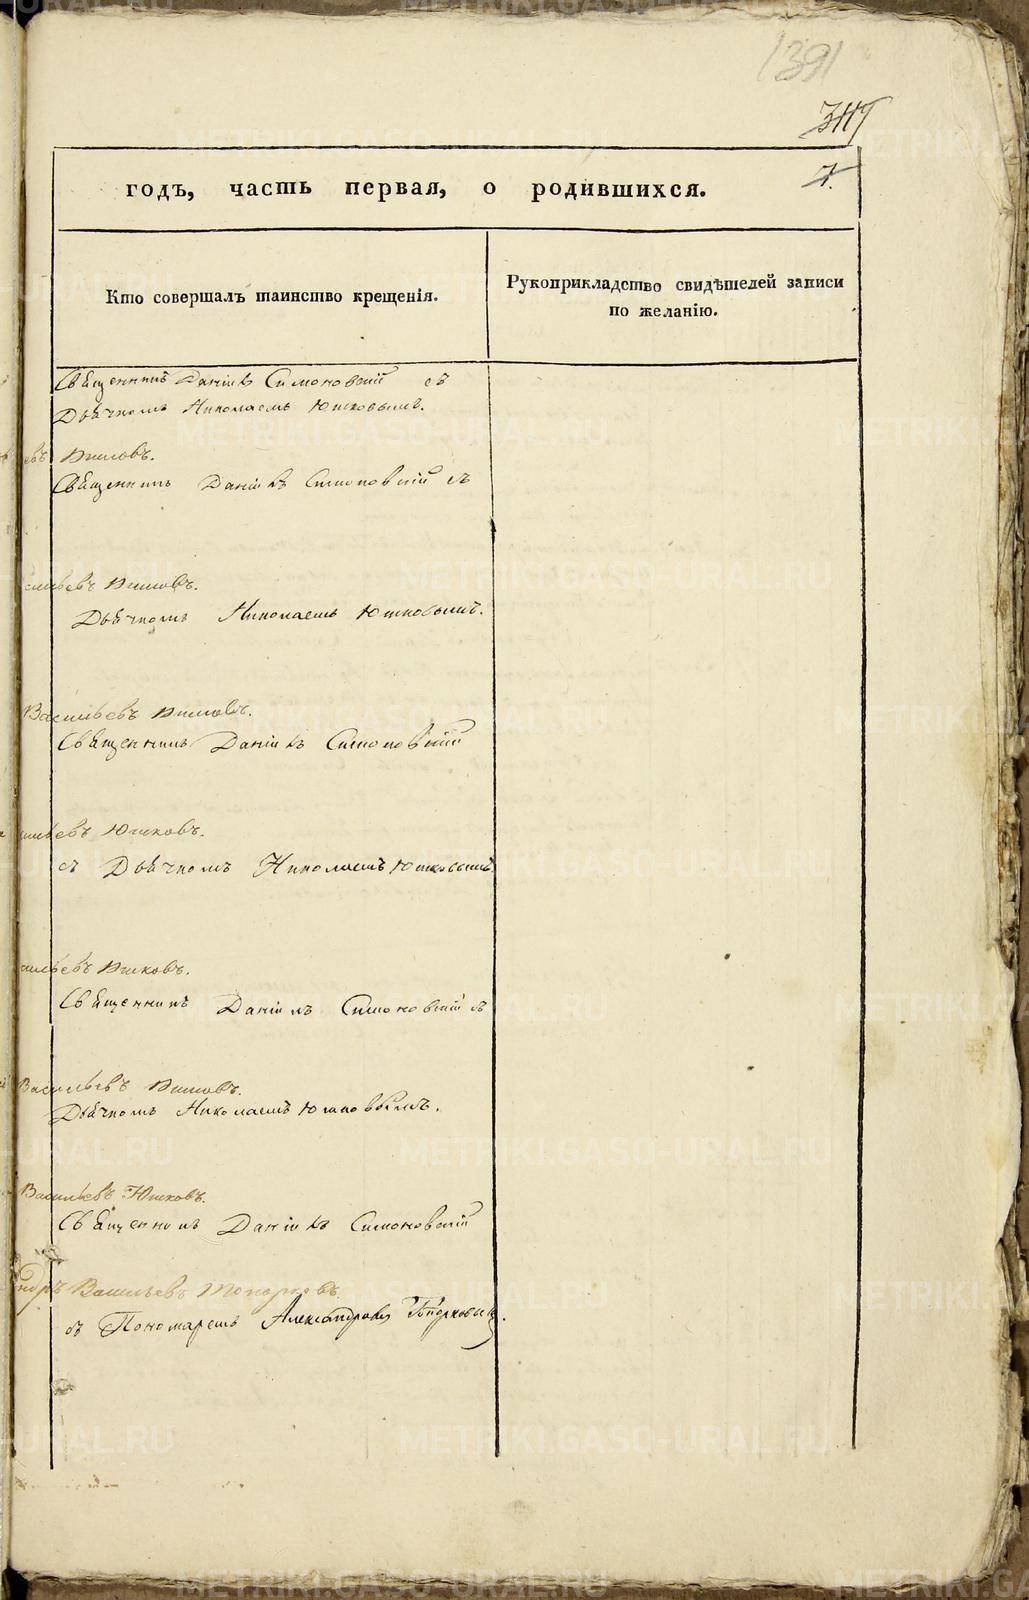 1391
317
годъ, часть первая, о родившихся.
7.
Кто совершалъ таинство крещенія.
Рукоприкладство свидѣтелей записи
по желанію.
Священникъ Даніилъ Симоновскій съ
Дьячкомъ Николаемъ Юшковымъ.
евъ Юшковъ.
Священникъ Даніилъ Симоновскій съ
сильевъ Юшковъ.
Дьячкомъ Николаемъ Юшковымъ.
Васильевъ Юшковъ.
Священникъ Даніилъ Симоновскій
ильевъ Юшковъ.
съ Дьячкомъ Николаемъ Юшковымъ
ильевъ Юшковъ.
Священникъ Даніилъ Симоновскій съ
Васильевъ Юшковъ.
Дьячкомъ Николаемъ Юшковымъ.
Васильевъ Юшковъ.
Священникъ Даніилъ Симоновскій
ндръ Васильевъ Топорковъ.
съ Пономаремъ Александромъ Топорковымъ.
METRIKI.GASO-URAL.RU